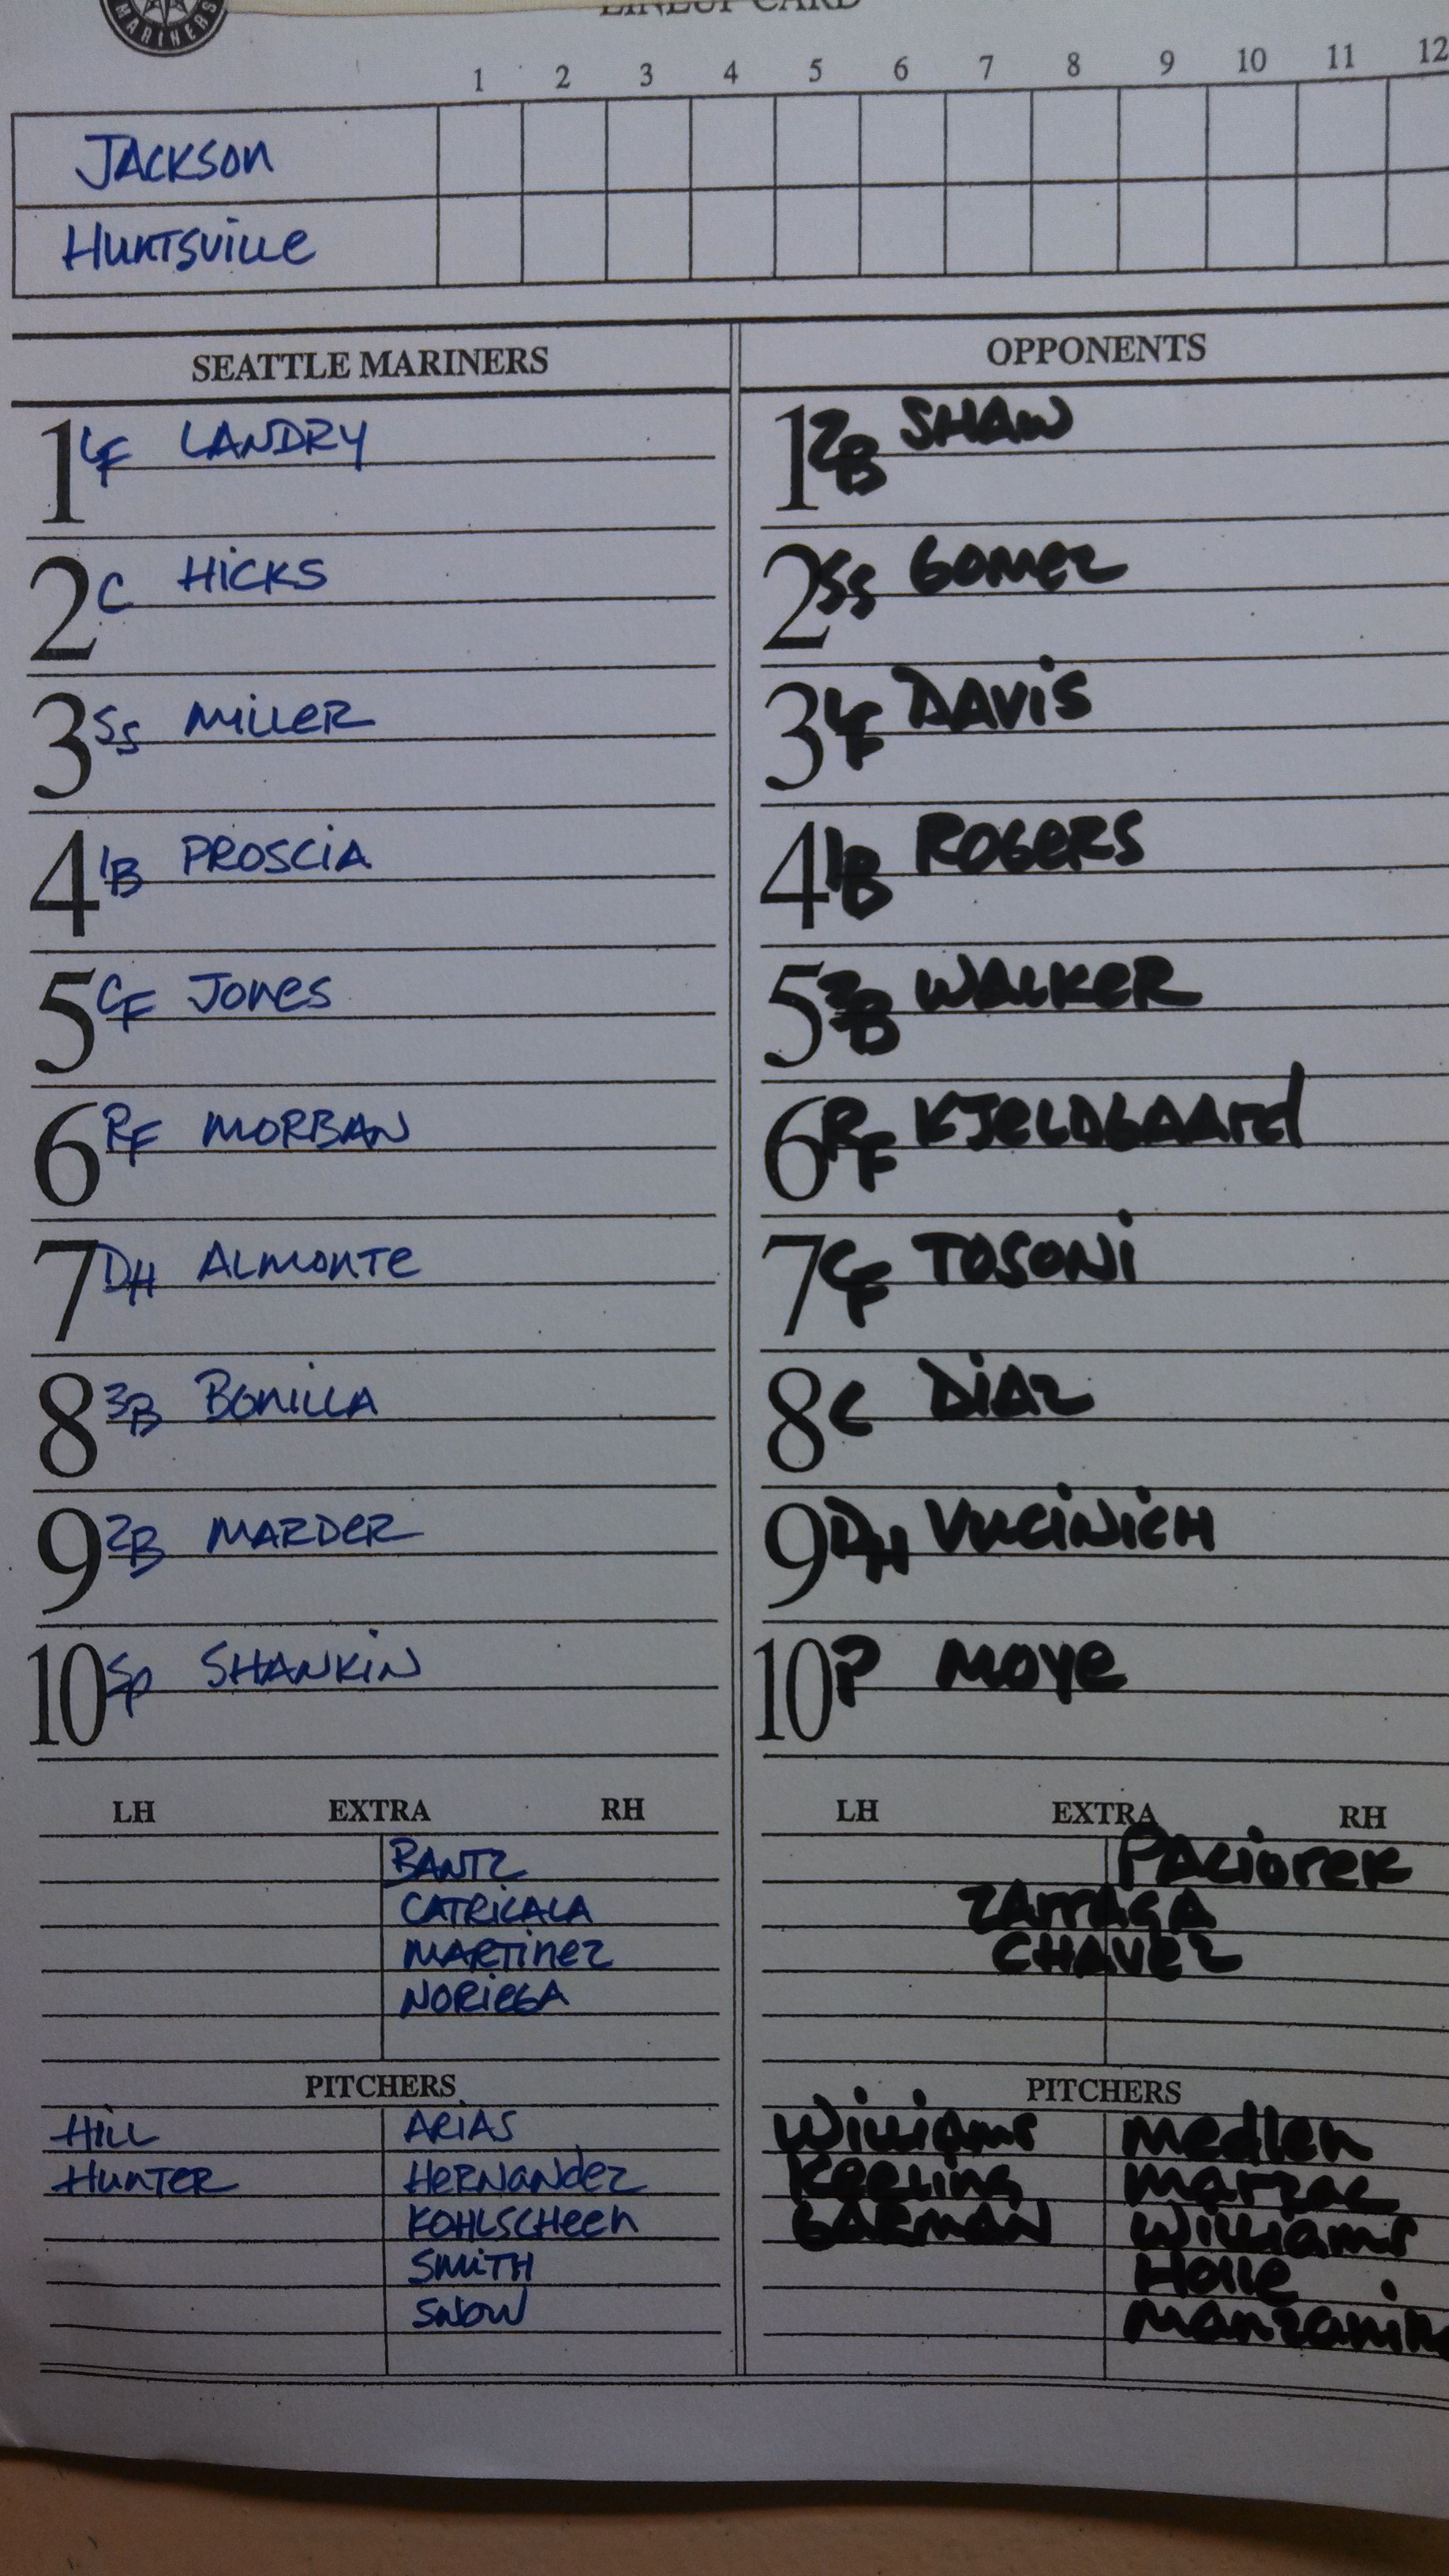 MARINERS
LINEUP CARD
1 2 3 4 5 6 7 8 9 10 11 12
JACKSON
HUNTSVILLE
SEATTLE MARINERS
1 LF LANDRY
2 C HICKS
3 SS MILLER
4 1B PROSCIA
5 CF JONES
6 RF MORBAN
7 DH ALMONTE
8 3B BONILLA
9 2B MARDER
10 SP SHANKIN
LH EXTRA RH
BANTZ
CATRICALA
MARTINEZ
NORIEGA
PITCHERS
HILL ARIAS
HUNTER HERNANDEZ
KOHLSCHEEN
SMITH
SNOW
OPPONENTS
1 2B SHAW
2 SS GOMEZ
3 LF DAVIS
4 1B ROGERS
5 3B WALKER
6 RF KJELDGAARD
7 CF TOSONI
8 C DIAZ
9 DH VUCINICH
10 P MOYE
LH EXTRA RH
PACIOREK
ZARRAGA
CHAVEZ
PITCHERS
Williams Medlen
Keeling Marzec
GARMAN Williams
Holle